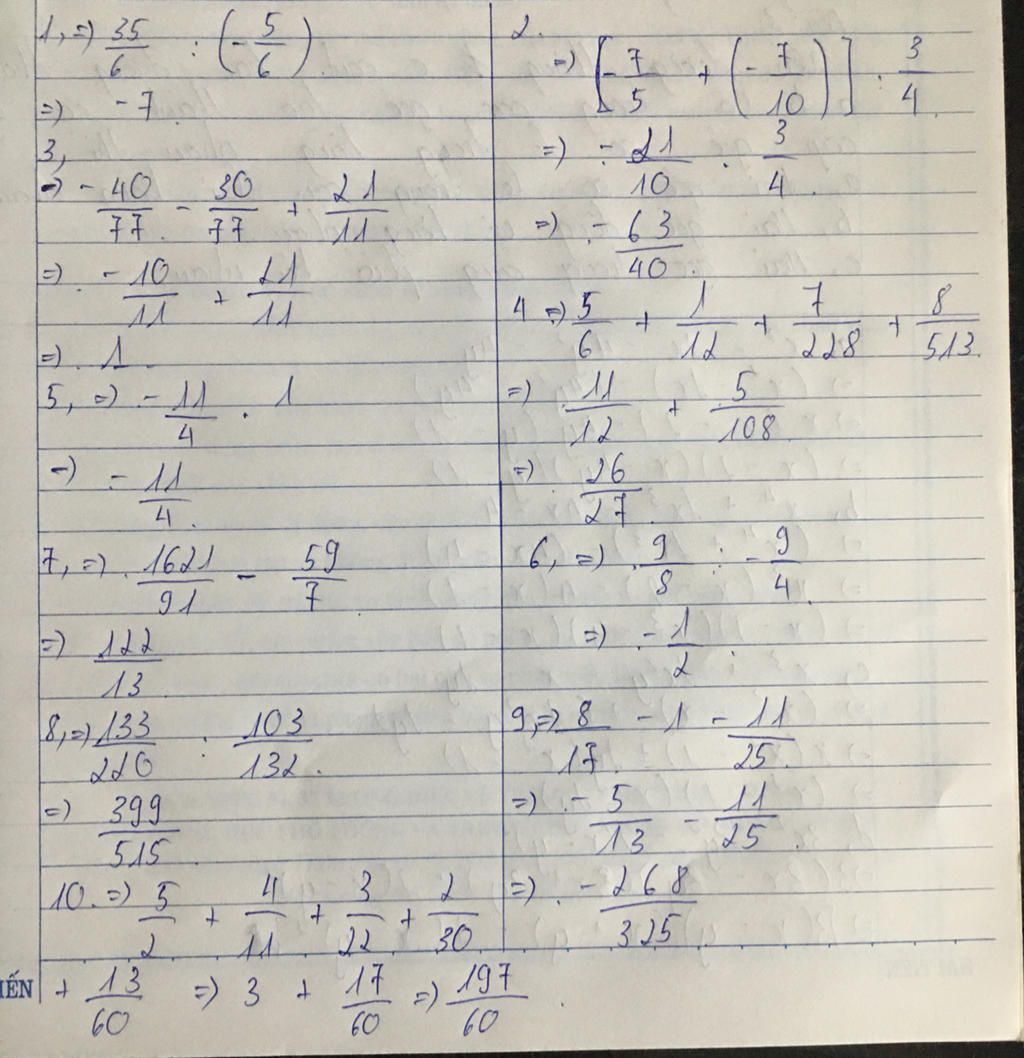 1, => 35/6 : (-5/6)
=> -7
3,
=> -40/77 - 30/77 + 21/11
=> -10/11 + 21/11
=> 1
5, => -11/4 . 1
=> -11/4.
7, => 1621/91 - 59/7
=> 122/13
8, => 133/220 : 103/132.
=> 399/515
10. => 5/2 + 4/11 + 3/22 + 2/30
+ 13/60 => 3 + 17/60 => 197/60.
2.
=> [-7/5 + (-7/10)] . 3/4
=> -21/10 . 3/4
=> -63/40.
4 => 5/6 + 1/12 + 7/228 + 8/513.
=> 11/12 + 5/108
=> 26/27
6, => 9/8 : -9/4
=> -1/2.
9, => 8/17 - 1 - 11/25.
=> -5/13 - 11/25
=> -268/325
IẾN